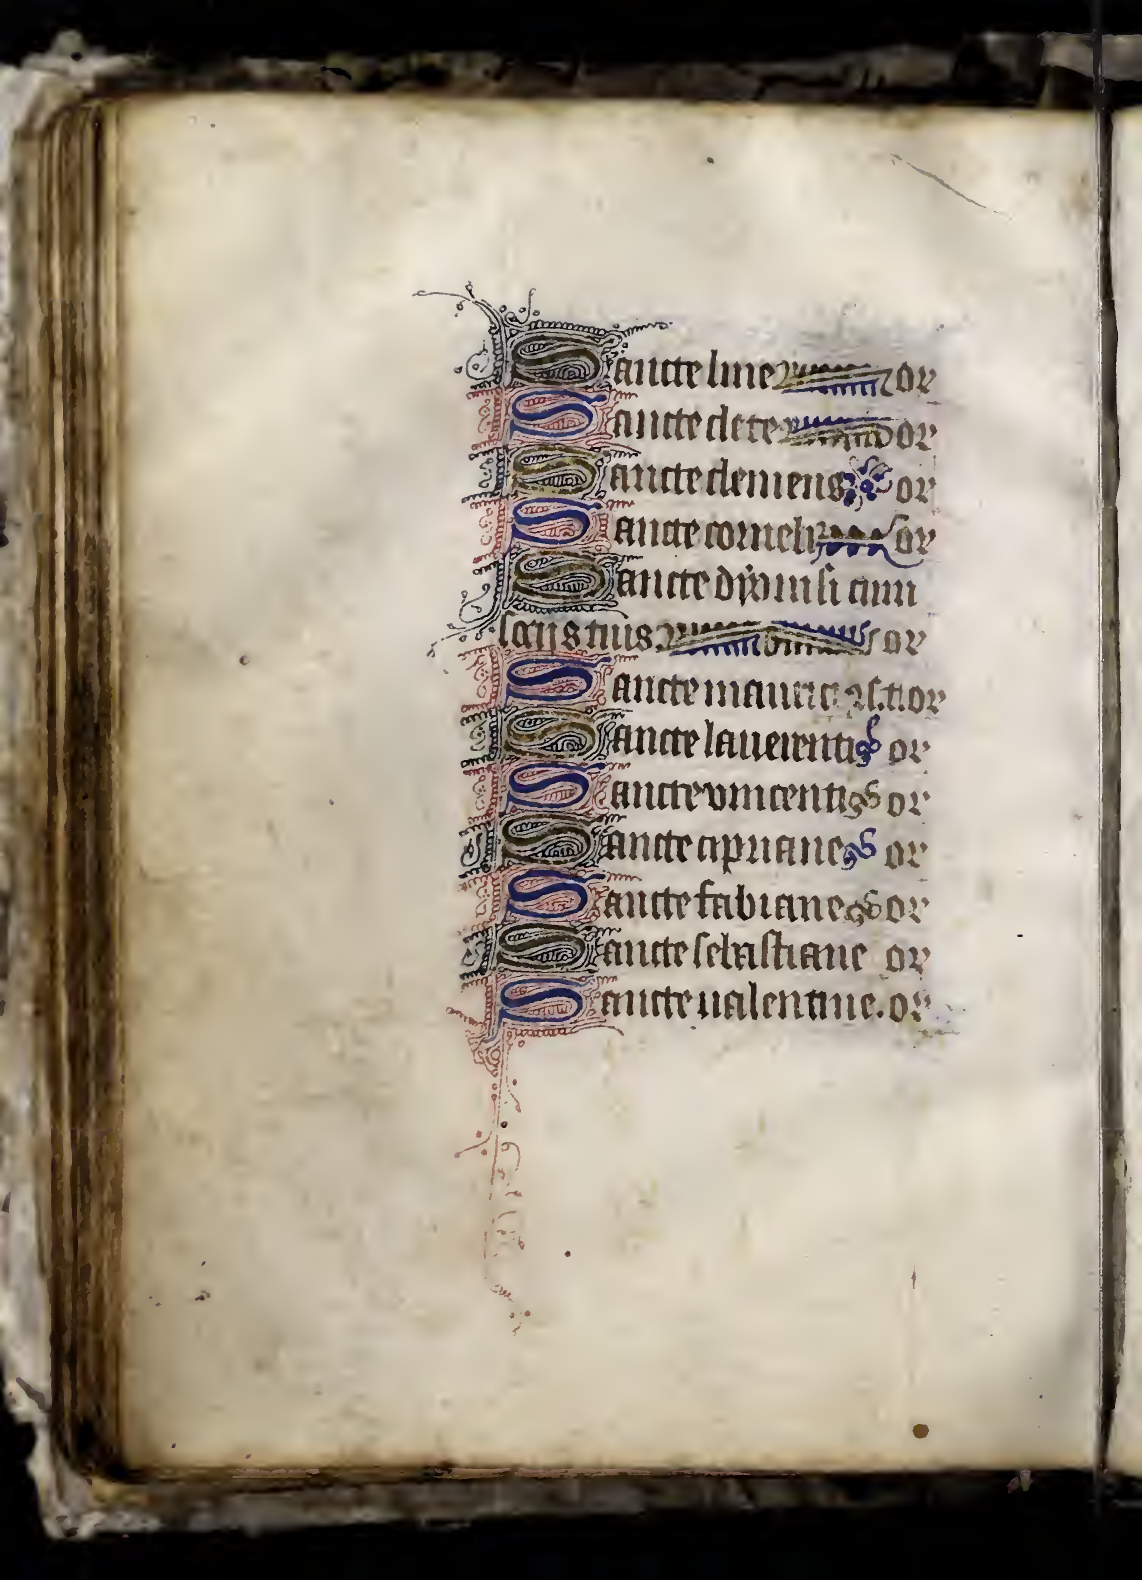 Sancte line or
Sancte clete or
Sancte clemens or
Sancte corneli or
Sancte dyonisi cum
sociis tuis or
Sancte or
Sancte laurenti or
Sancte vincenti or
Sancte cipriane or
Sancte fabiane or
Sancte sebastiane or
Sancte ualentine. or